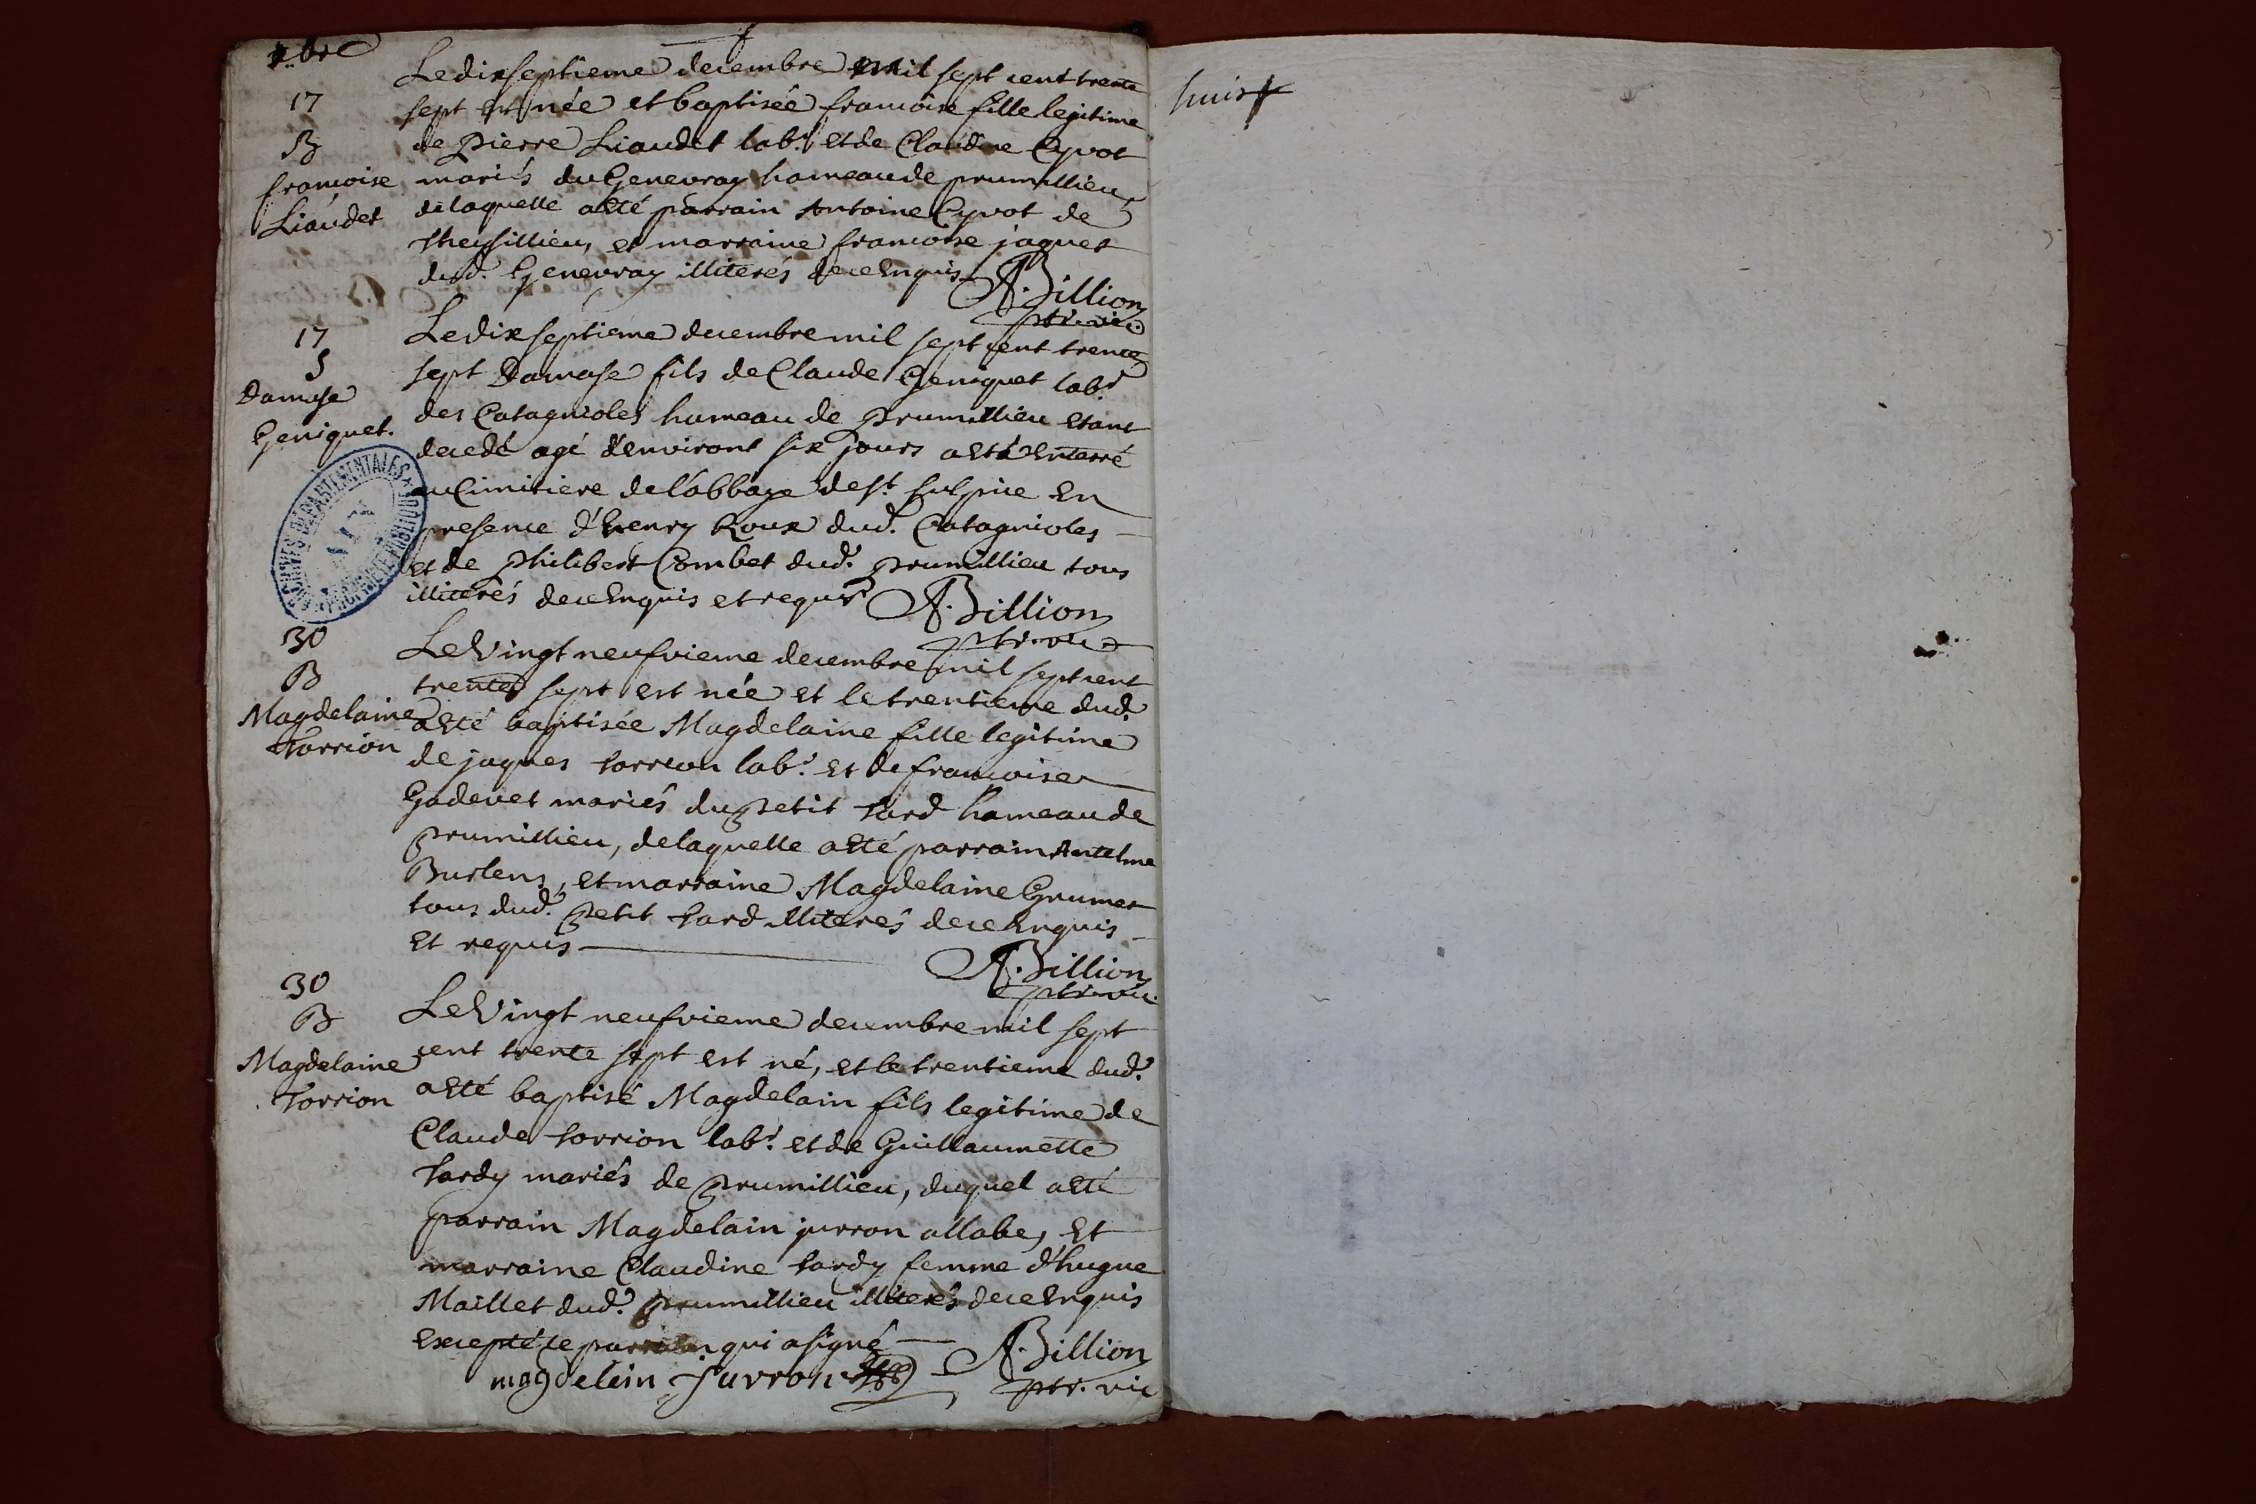 xbre
17
B
francoise
Liaudet
Le dixseptieme decembre mil sept cent trente
sept est née et baptisée francoise fille legitime
de pierre Liaudet lab.r et de Claudine Cyvot
mariés du Genevray hameau de prumillieu,
de laquelle a eté parrain Antoine Cyvot de
theysillieu, et marraine francoise jaquet
dud.t Genevray illiterés de ce enquis
A. Billion
ptr. vic
17
S
Damase
Geniquet.
Le dix septieme decembre mil sept cent trente
sept Damase fils de Claude Geniquet lab.r
des Catagnoles hameau de prumillieu etant
decedé agé d'environt six jours a eté enterré
au Cimitiere de l'abbaye de st. sulpice en
presence d'henry Roux dud.t Catagnioles
et de philibert Combet dud.t prumillieu tous
illiterés de ce enquis et requis
A. Billion
ptr. vic
30
B
Magdelaine
torrion
Le Vingt neufvieme decembre mil sept cent
trente sept est née et le trentieme dud.t
a eté baptisée Magdelaine fille legitime
de jaques torrion lab.r et de francoise
Godevet mariés du petit tard hameau de
prumillieu, de laquelle a eté parrain Antelme
Burlens, et marraine Magdelaine Grumet
tous dud.t petit tard illiterés de ce enquis
et requis
A. Billion
ptr. vic.
30
B
Magdelaine
torrion
Le Vingt neufvieme decembre mil sept
cent trente sept est né, et le trentieme dud.t
a eté baptisé Magdelain fils legitime de
Claude torrion lab.r et de Guillaumette
tardy mariés de prumillieu, duquel a eté
parrain Magdelain jurron allabe, et
marraine Claudine tardy femme d'hugue
Maillet dud.t prumillieu illiterés de ce enquis
excepté le parrain qui a signé
A. Billion
magdelein Jurron
ptr. vic
ARCHIVES DEPARTEMENTALES
AIN